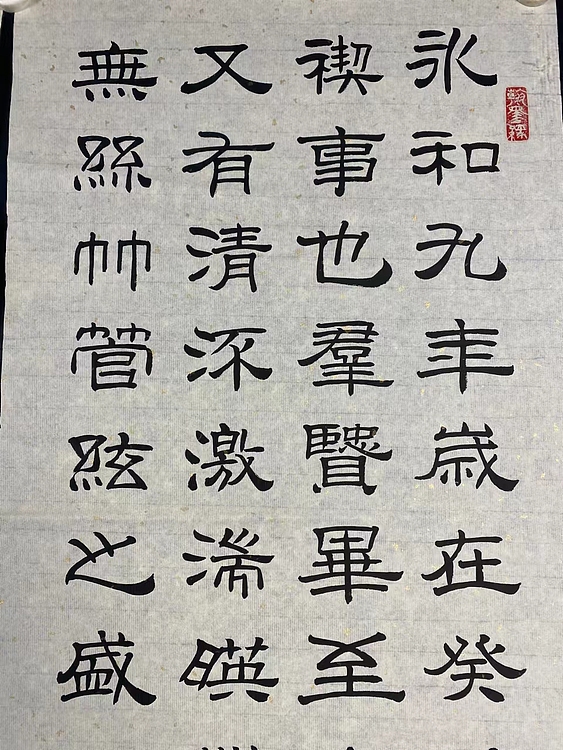 永和九年歲在癸
禊事也羣贒畢至
又有清流激湍暎
無絲竹管絃之盛
翰墨緣